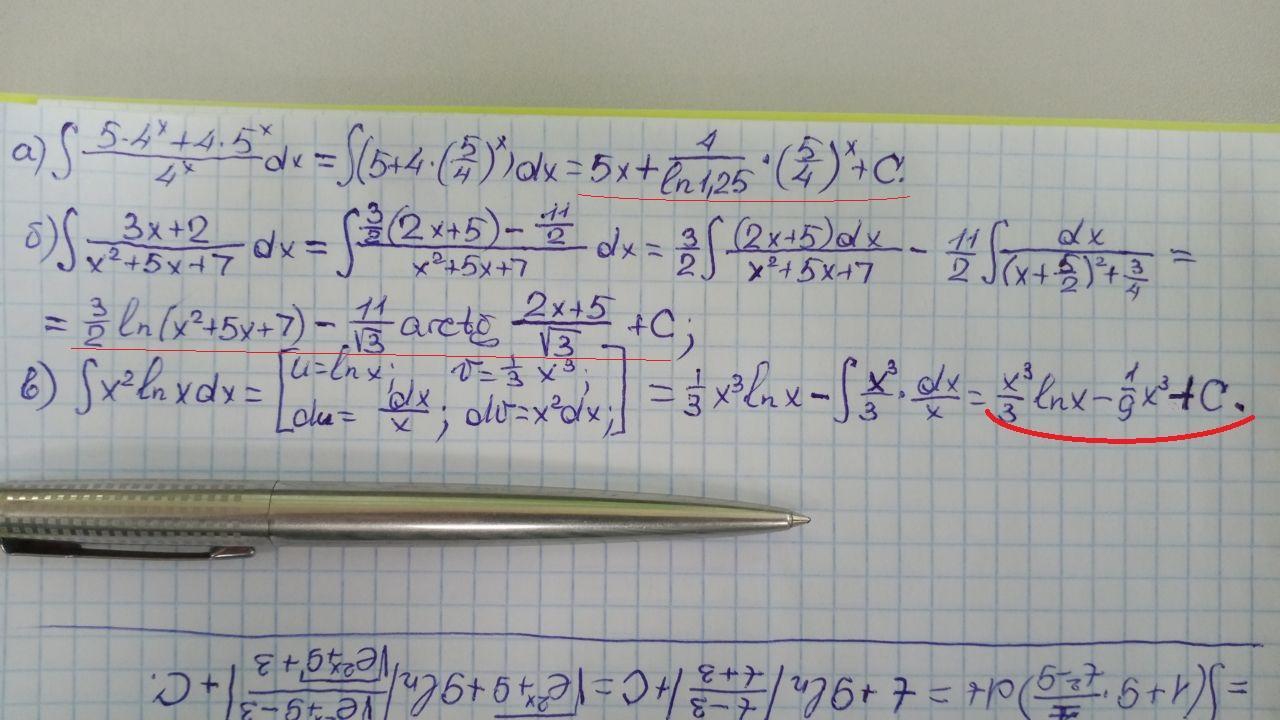 а) ∫ (5·4^x + 4·5^x)/4^x dx = ∫(5+4·(5/4)^x)dx = 5x + 4/ln1,25 · (5/4)^x + C.
б) ∫ (3x+2)/(x²+5x+7) dx = ∫ (3/2(2x+5) − 11/2)/(x²+5x+7) dx = 3/2 ∫ (2x+5)dx/(x²+5x+7) − 11/2 ∫ dx/((x+5/2)²+3/4) =
= 3/2 ln(x²+5x+7) − 11/√3 arctg (2x+5)/√3 + C;
в) ∫x² ln x dx = [u=ln x; v=1/3 x³; du= dx/x; dv=x²dx;] = 1/3 x³ ln x − ∫ x³/3 · dx/x = x³/3 ln x − 1/9 x³ + C.
= ∫(1+9· /(t²-9))dt = t + 9ln|(t-3)/(t+3)| + C = √(e^2x+9) + 9ln|(√(e^2x+9) − 3)/(√(e^2x+9) + 3)| + C.